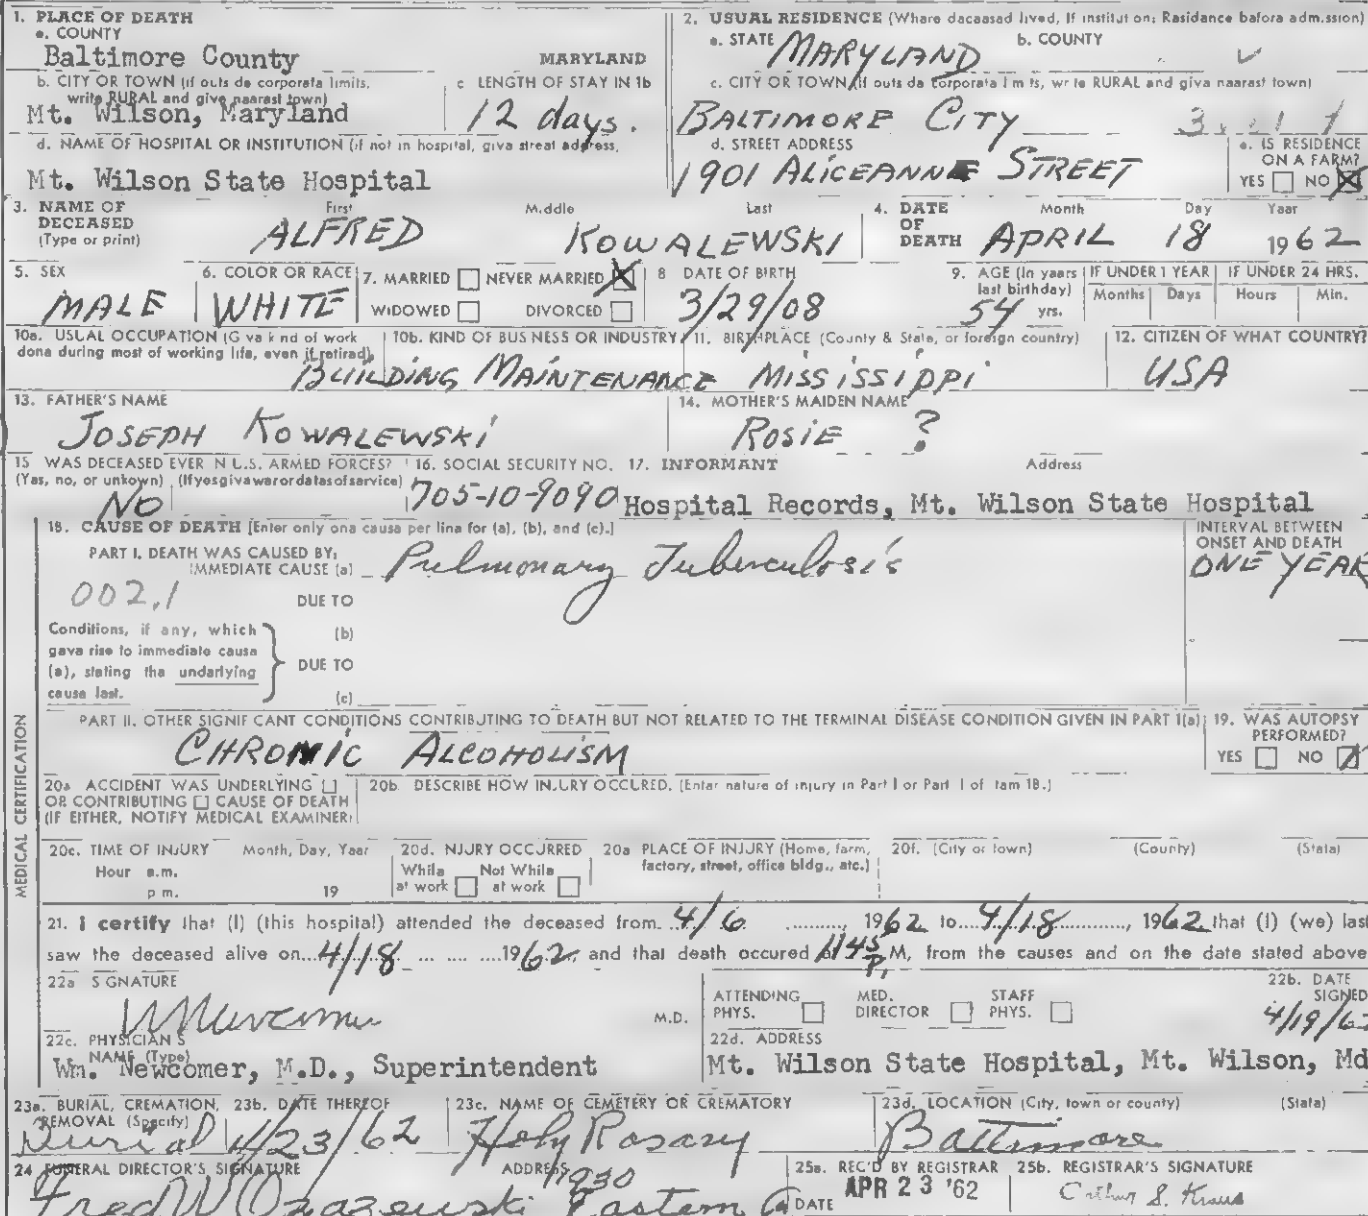 1. PLACE OF DEATH
a. COUNTY
Baltimore County MARYLAND
b. CITY OR TOWN (if outside corporate limits, write RURAL and give nearest town)
Mt. Wilson, Maryland
c LENGTH OF STAY IN 1b
12 days.
d. NAME OF HOSPITAL OR INSTITUTION (if not in hospital, give street address,
Mt. Wilson State Hospital
2. USUAL RESIDENCE (Where deceased lived, If institution; Residence before admission)
a. STATE MARYLAND b. COUNTY
c. CITY OR TOWN (If outside corporate limits, write RURAL and give nearest town)
BALTIMORE CITY
d. STREET ADDRESS
1901 ALICEANNE STREET
e. IS RESIDENCE ON A FARM?
YES NO
3. NAME OF DECEASED (Type or print)
First Middle Last
ALFRED KOWALEWSKI
4. DATE OF DEATH
Month Day Year
APRIL 18 1962
5. SEX
MALE
6. COLOR OR RACE
WHITE
7. MARRIED NEVER MARRIED
WIDOWED DIVORCED
8 DATE OF BIRTH
3/29/08
9. AGE (In years last birthday)
54 yrs.
IF UNDER 1 YEAR
Months Days
IF UNDER 24 HRS.
Hours Min.
10a. USUAL OCCUPATION (Give kind of work done during most of working life, even if retired)
10b. KIND OF BUSINESS OR INDUSTRY
BUILDING MAINTENANCE
11. BIRTHPLACE (County & State, or foreign country)
MISSISSIPPI
12. CITIZEN OF WHAT COUNTRY?
USA
13. FATHER'S NAME
JOSEPH KOWALEWSKI
14. MOTHER'S MAIDEN NAME
ROSIE ?
15 WAS DECEASED EVER IN U.S. ARMED FORCES?
(Yes, no, or unkown) (If yes give war or dates of service)
NO
16. SOCIAL SECURITY NO.
705-10-9090
17. INFORMANT Address
Hospital Records, Mt. Wilson State Hospital
18. CAUSE OF DEATH [Enter only one cause per line for (a), (b), and (c).]
PART I. DEATH WAS CAUSED BY:
IMMEDIATE CAUSE (a) Pulmonary Tuberculosis
INTERVAL BETWEEN ONSET AND DEATH
ONE YEAR
002.1
DUE TO
Conditions, if any, which gave rise to immediate cause (a), stating the underlying cause last.
(b)
DUE TO
(c)
PART II. OTHER SIGNIFICANT CONDITIONS CONTRIBUTING TO DEATH BUT NOT RELATED TO THE TERMINAL DISEASE CONDITION GIVEN IN PART I(a)
CHRONIC ALCOHOLISM
19. WAS AUTOPSY PERFORMED?
YES NO
MEDICAL CERTIFICATION
20a ACCIDENT WAS UNDERLYING
OR CONTRIBUTING CAUSE OF DEATH
(IF EITHER, NOTIFY MEDICAL EXAMINER)
20b. DESCRIBE HOW INJURY OCCURED. (Enter nature of injury in Part I or Part I of item 18.)
20c. TIME OF INJURY Month, Day, Year
Hour a.m.
p m. 19
20d. INJURY OCCURRED
While at work Not While at work
20e PLACE OF INJURY (Home, farm, factory, street, office bldg., etc.)
20f. (City or town) (County) (State)
21. I certify that (I) (this hospital) attended the deceased from 4/6 1962 to 4/18, 1962 that (I) (we) last
saw the deceased alive on 4/18 1962, and that death occured 1145 P. M, from the causes and on the date stated above
22a SIGNATURE
M.D.
ATTENDING PHYS. MED. DIRECTOR STAFF PHYS.
22b. DATE SIGNED
4/19/62
22c. PHYSICIAN'S NAME (Type)
Wm. Newcomer, M.D., Superintendent
22d. ADDRESS
Mt. Wilson State Hospital, Mt. Wilson, Md
23a. BURIAL, CREMATION, REMOVAL (Specify)
Burial
23b. DATE THEREOF
4/23/62
23c. NAME OF CEMETERY OR CREMATORY
Holy Rosary
23d. LOCATION (City, town or county) (State)
Baltimore
24 FUNERAL DIRECTOR'S SIGNATURE ADDRESS
Fred W Ozazewski 1930 Eastern
25a. REC'D BY REGISTRAR
DATE APR 23 '62
25b. REGISTRAR'S SIGNATURE
S. Kraus